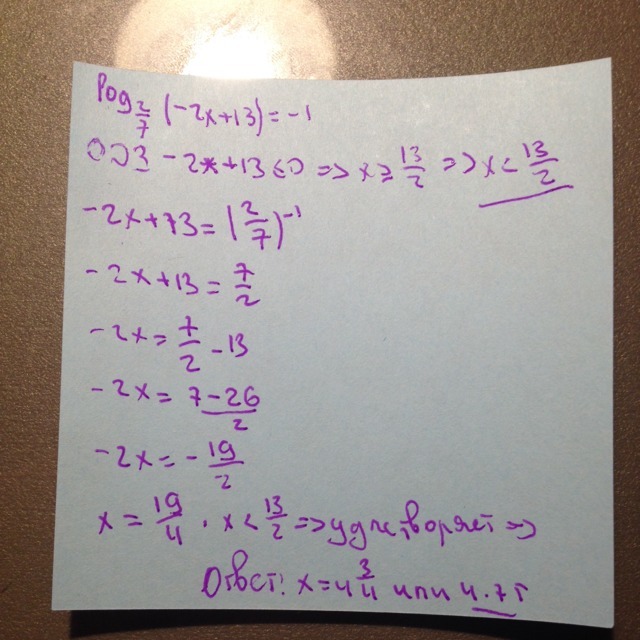 log_{2/7} (-2x+13) = -1
ОДЗ -2x+13≤0 => x≥13/2 => x<13/2
-2x+13=(2/7)^{-1}
-2x+13=7/2
-2x=7/2-13
-2x=(7-26)/2
-2x=-19/2
x=19/4, x<13/2 => удлетворяет =>
Ответ: x=4 3/4 или 4.75